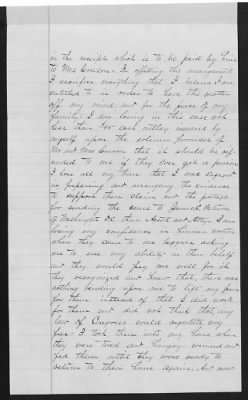 in the receipts which is to be paid by
to Mrs Curson. In effecting this arrangement
I sacrifice everything that I believe I am
entitled to in order to have the matter
off my mind and for the peace of my
family. I am losing in this case not
less than cash outlay incurred by
myself upon the solemn promises of
Mr and Mrs Curson that it should be
refunded to me if they ever got a pension
I lose all my time that I was engaged
in preparing and arranging the evidence
to support their claim and the postage
for sending the same to General
of Washington DC their Attys. I am
losing my confidence in human nature
when they came to me beggars asking
me to use my ability in their behalf
and they would pay me well for it
they recognized and knew that there was
nothing binding upon me to lift my pen
for them instead of that I did work
for them and did not think that any
law of Congress would my
fees. I took them into my home when
they were tired and hungry warmed and
fed them until they were ready to
return to their home again. And now